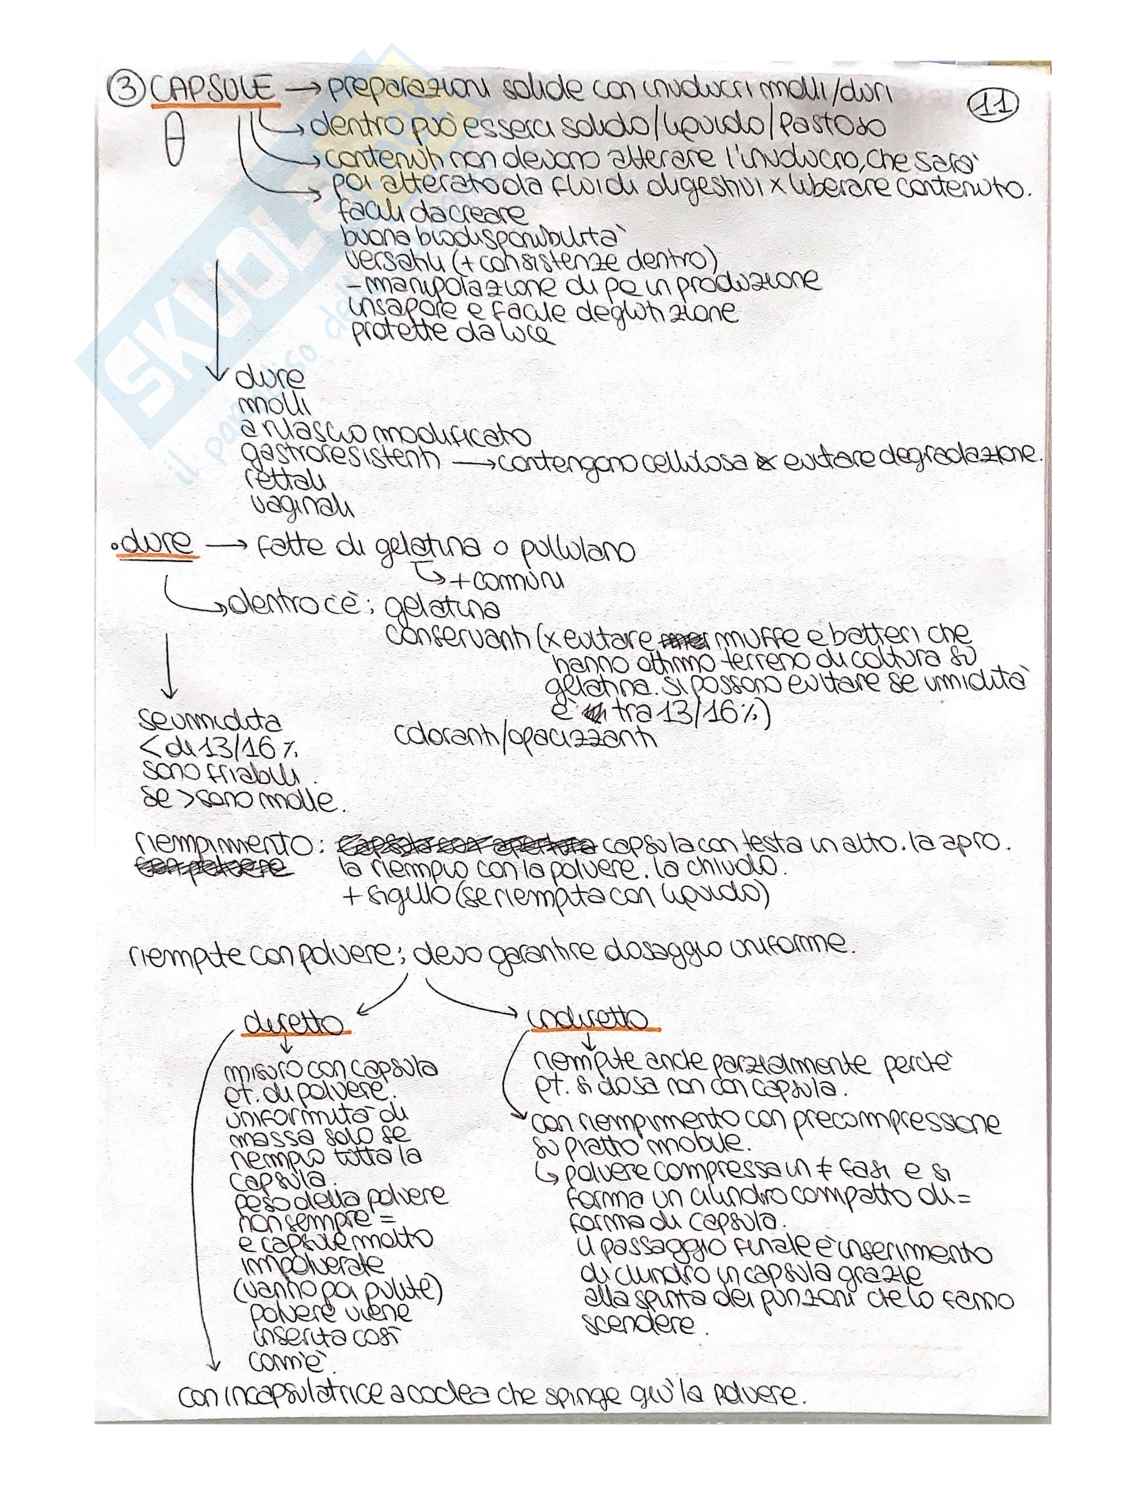 ③ CAPSULE → preparazioni solide con involucri molli/duri
11
dentro può esserci solido/liquido/pastoso
contenuti non devono alterare l'involucro, che sarà
poi alterato da fluidi digestivi x liberare contenuto.
facili da creare
buona biodisponibilità
versatili (+ consistenze dentro)
- manipolazione di pa in produzione
insapore e facile deglutizione
protette da luce
dure
molli
a rilascio modificato
gastroresistenti → contengono cellulosa x evitare degradazione.
rettali
vaginali
• dure → fatte di gelatina o pullulano
+ comuni
dentro c'è: gelatina
conservanti (x evitare muffe e batteri che
hanno ottimo terreno di coltura su
gelatina. si possono evitare se umidità
è tra 13/16%)
coloranti/opacizzanti
se umidità
< di 13/16%
sono friabili.
se > sono molle.
riempimento: capsula con testa in alto. la apro.
la riempio con la polvere. la chiudo.
+ sigillo (se riempita con liquido)
riempite con polvere: devo garantire dosaggio uniforme.
diretto
misuro con capsula
qt. di polvere.
uniformità di
massa solo se
riempio tutta la
capsula.
peso della polvere
non sempre =
e capsule molto
impolverate
(vanno poi pulite)
polvere viene
inserita così
com'è.
con incapsulatrice a coclea che spinge giù la polvere.
indiretto
riempite anche parzialmente perchè
qt. si dosa non con capsula.
con riempimento con precompressione
su piatto mobile.
↳ polvere compressa in ≠ fasi e si
forma un cilindro compatto di =
forma di capsula.
il passaggio finale è inserimento
di cilindro in capsula grazie
alla spinta dei punzoni che lo fanno
scendere.
SKUOLA